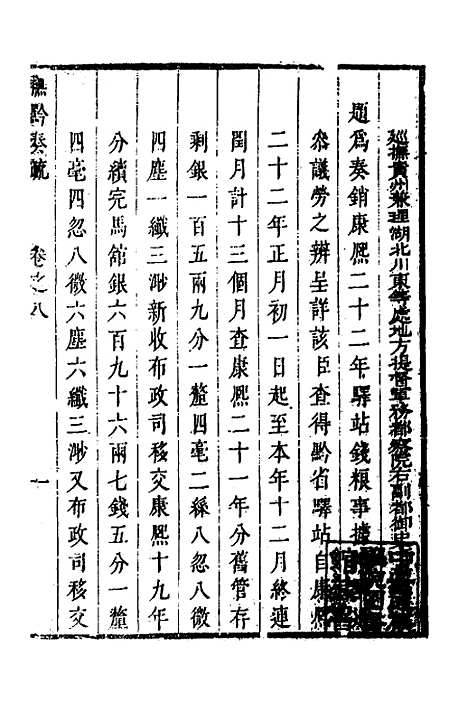 巡撫貴州兼理湖北川東等處地方提督軍務都察院右副都御史
題爲奏銷康熙二十二年驛站錢糧事據
參議勞之辨呈詳該臣查得黔省驛站自康熙
二十二年正月初一日起至本年十二月終連
閏月計十三個月查康熙二十一年分舊管存
剩銀一百五兩九分一釐四毫二絲八忽八微
四塵一纖三渺新收布政司移交康熙十九年
分續完馬舘銀六百九十六兩七錢五分一釐
四毫四忽八微六塵六纖三渺又布政司移交
撫黔奏疏
卷之八
一